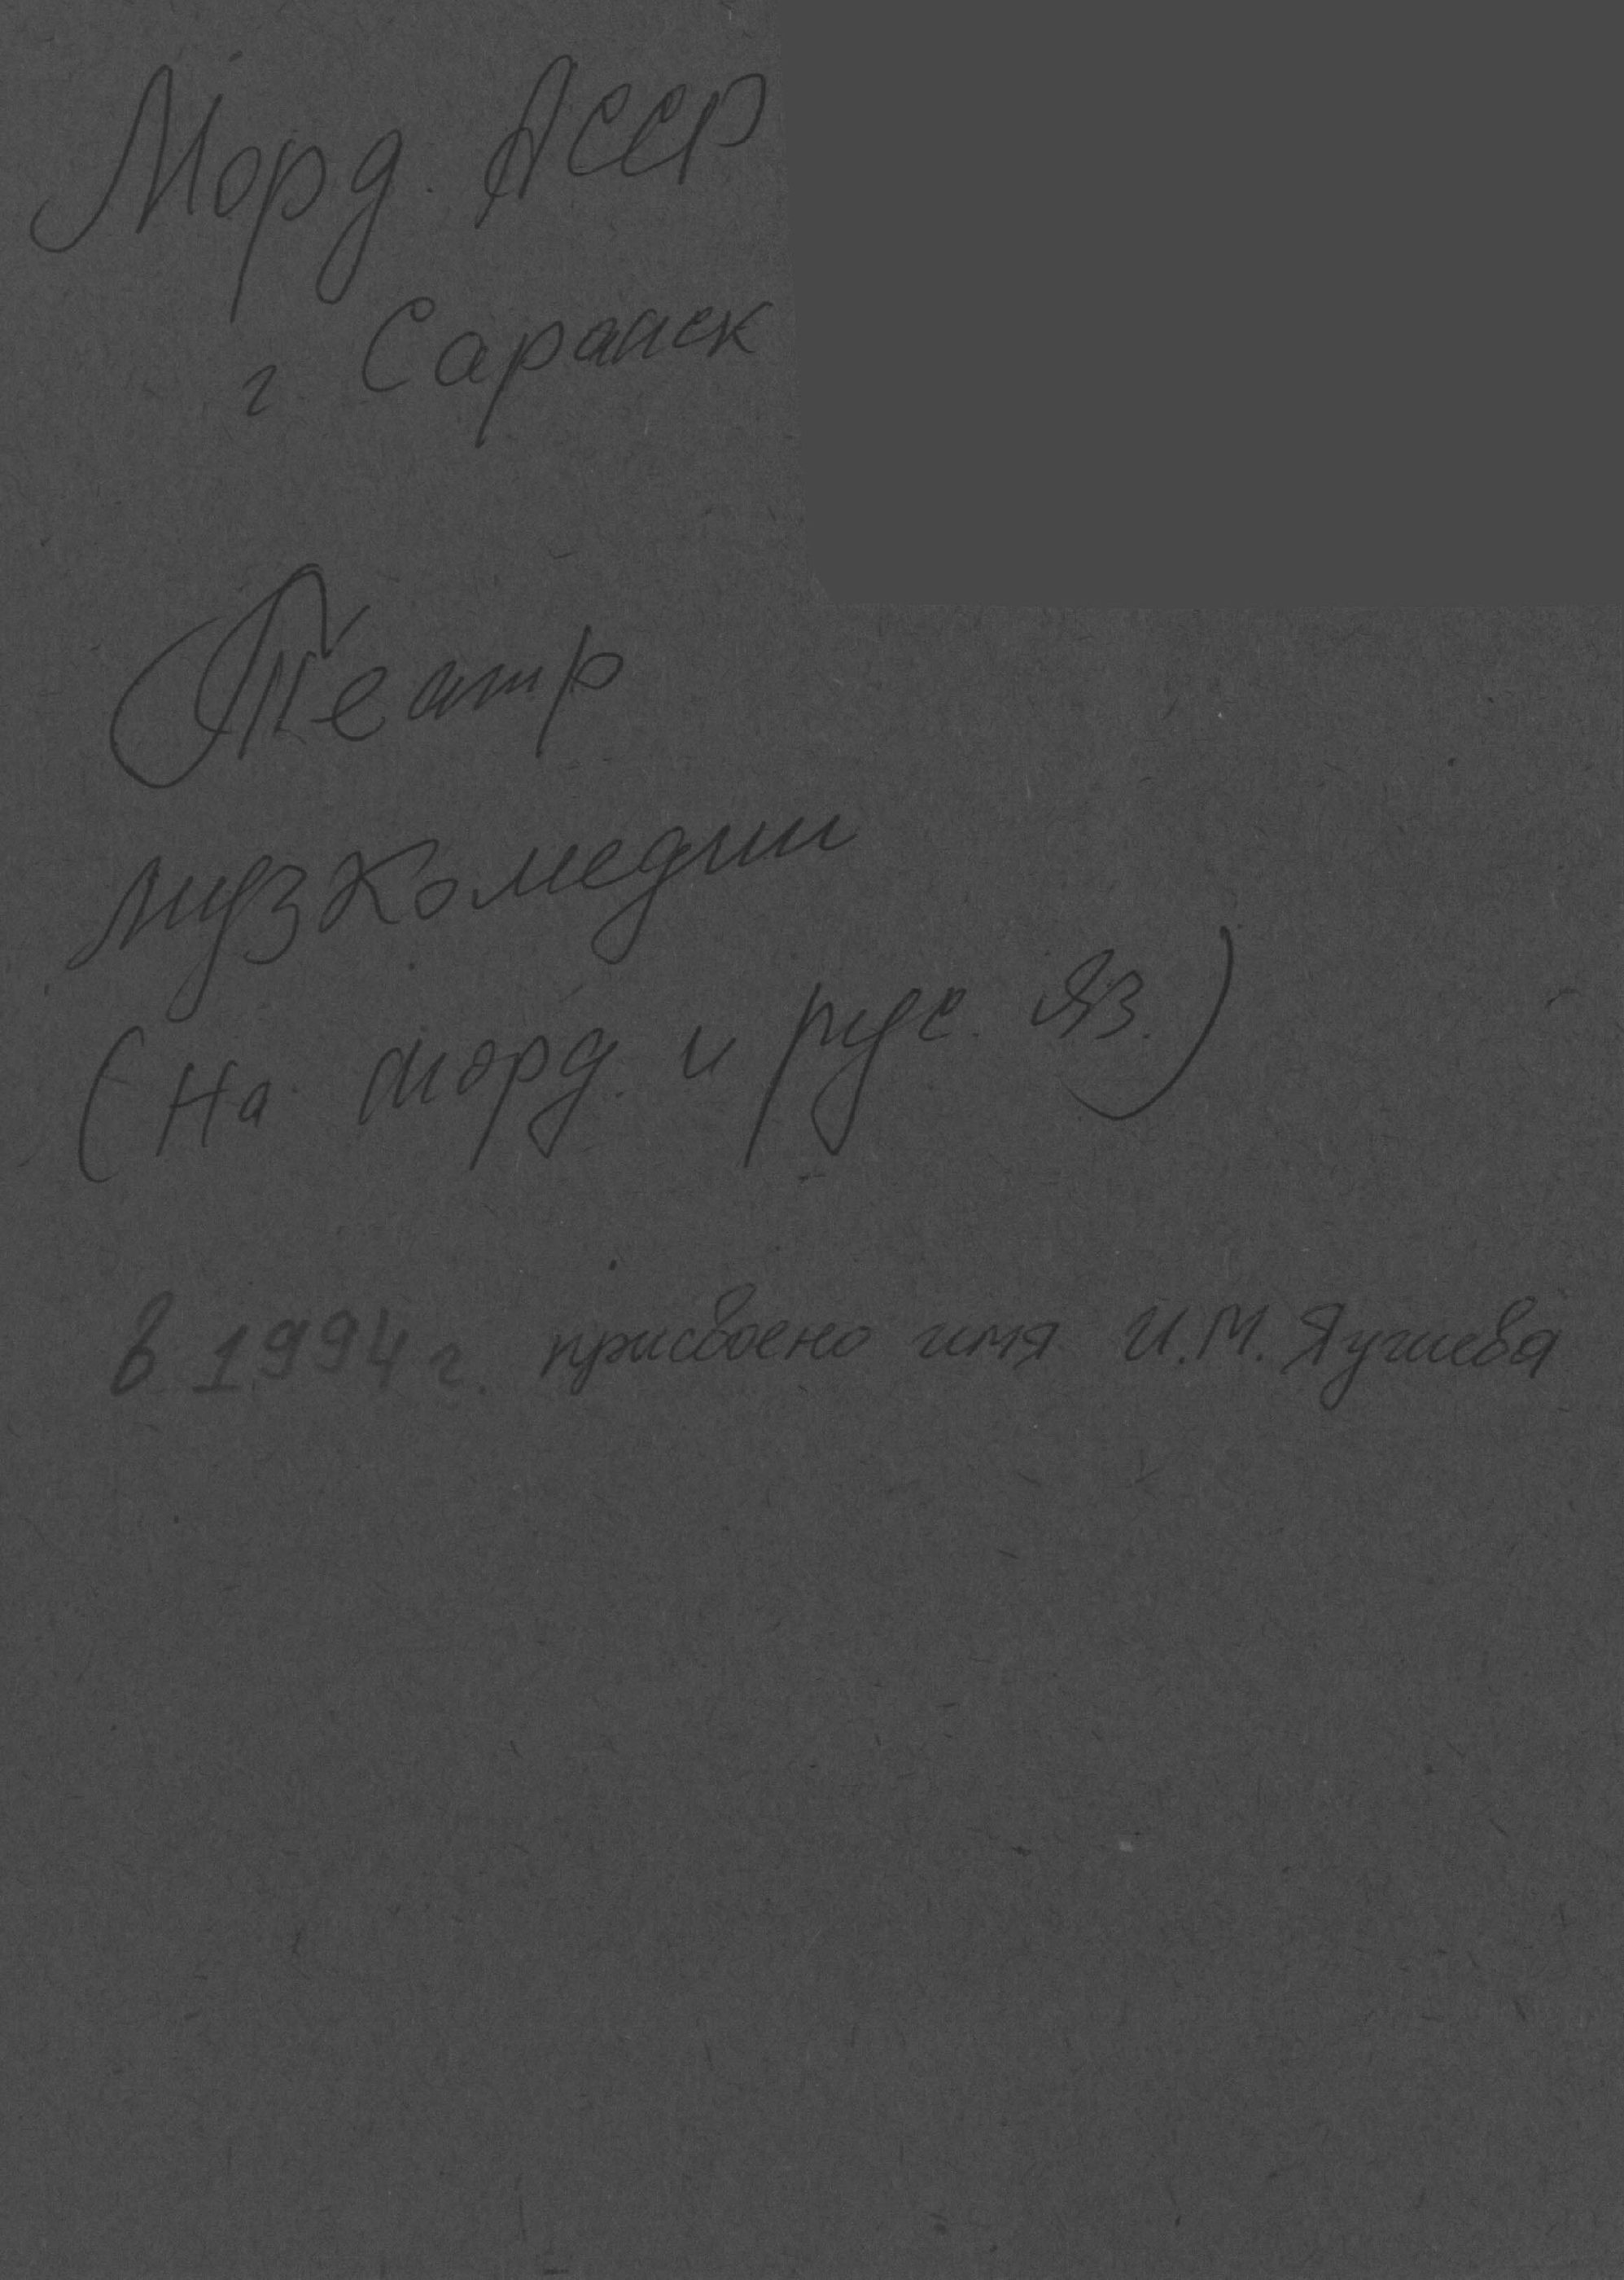 Морд. АССР
г. Саранск
Театр
музкомедии
(На морд. и рус. яз.)
в 1994 г. присвоено имя И.М. Яушева